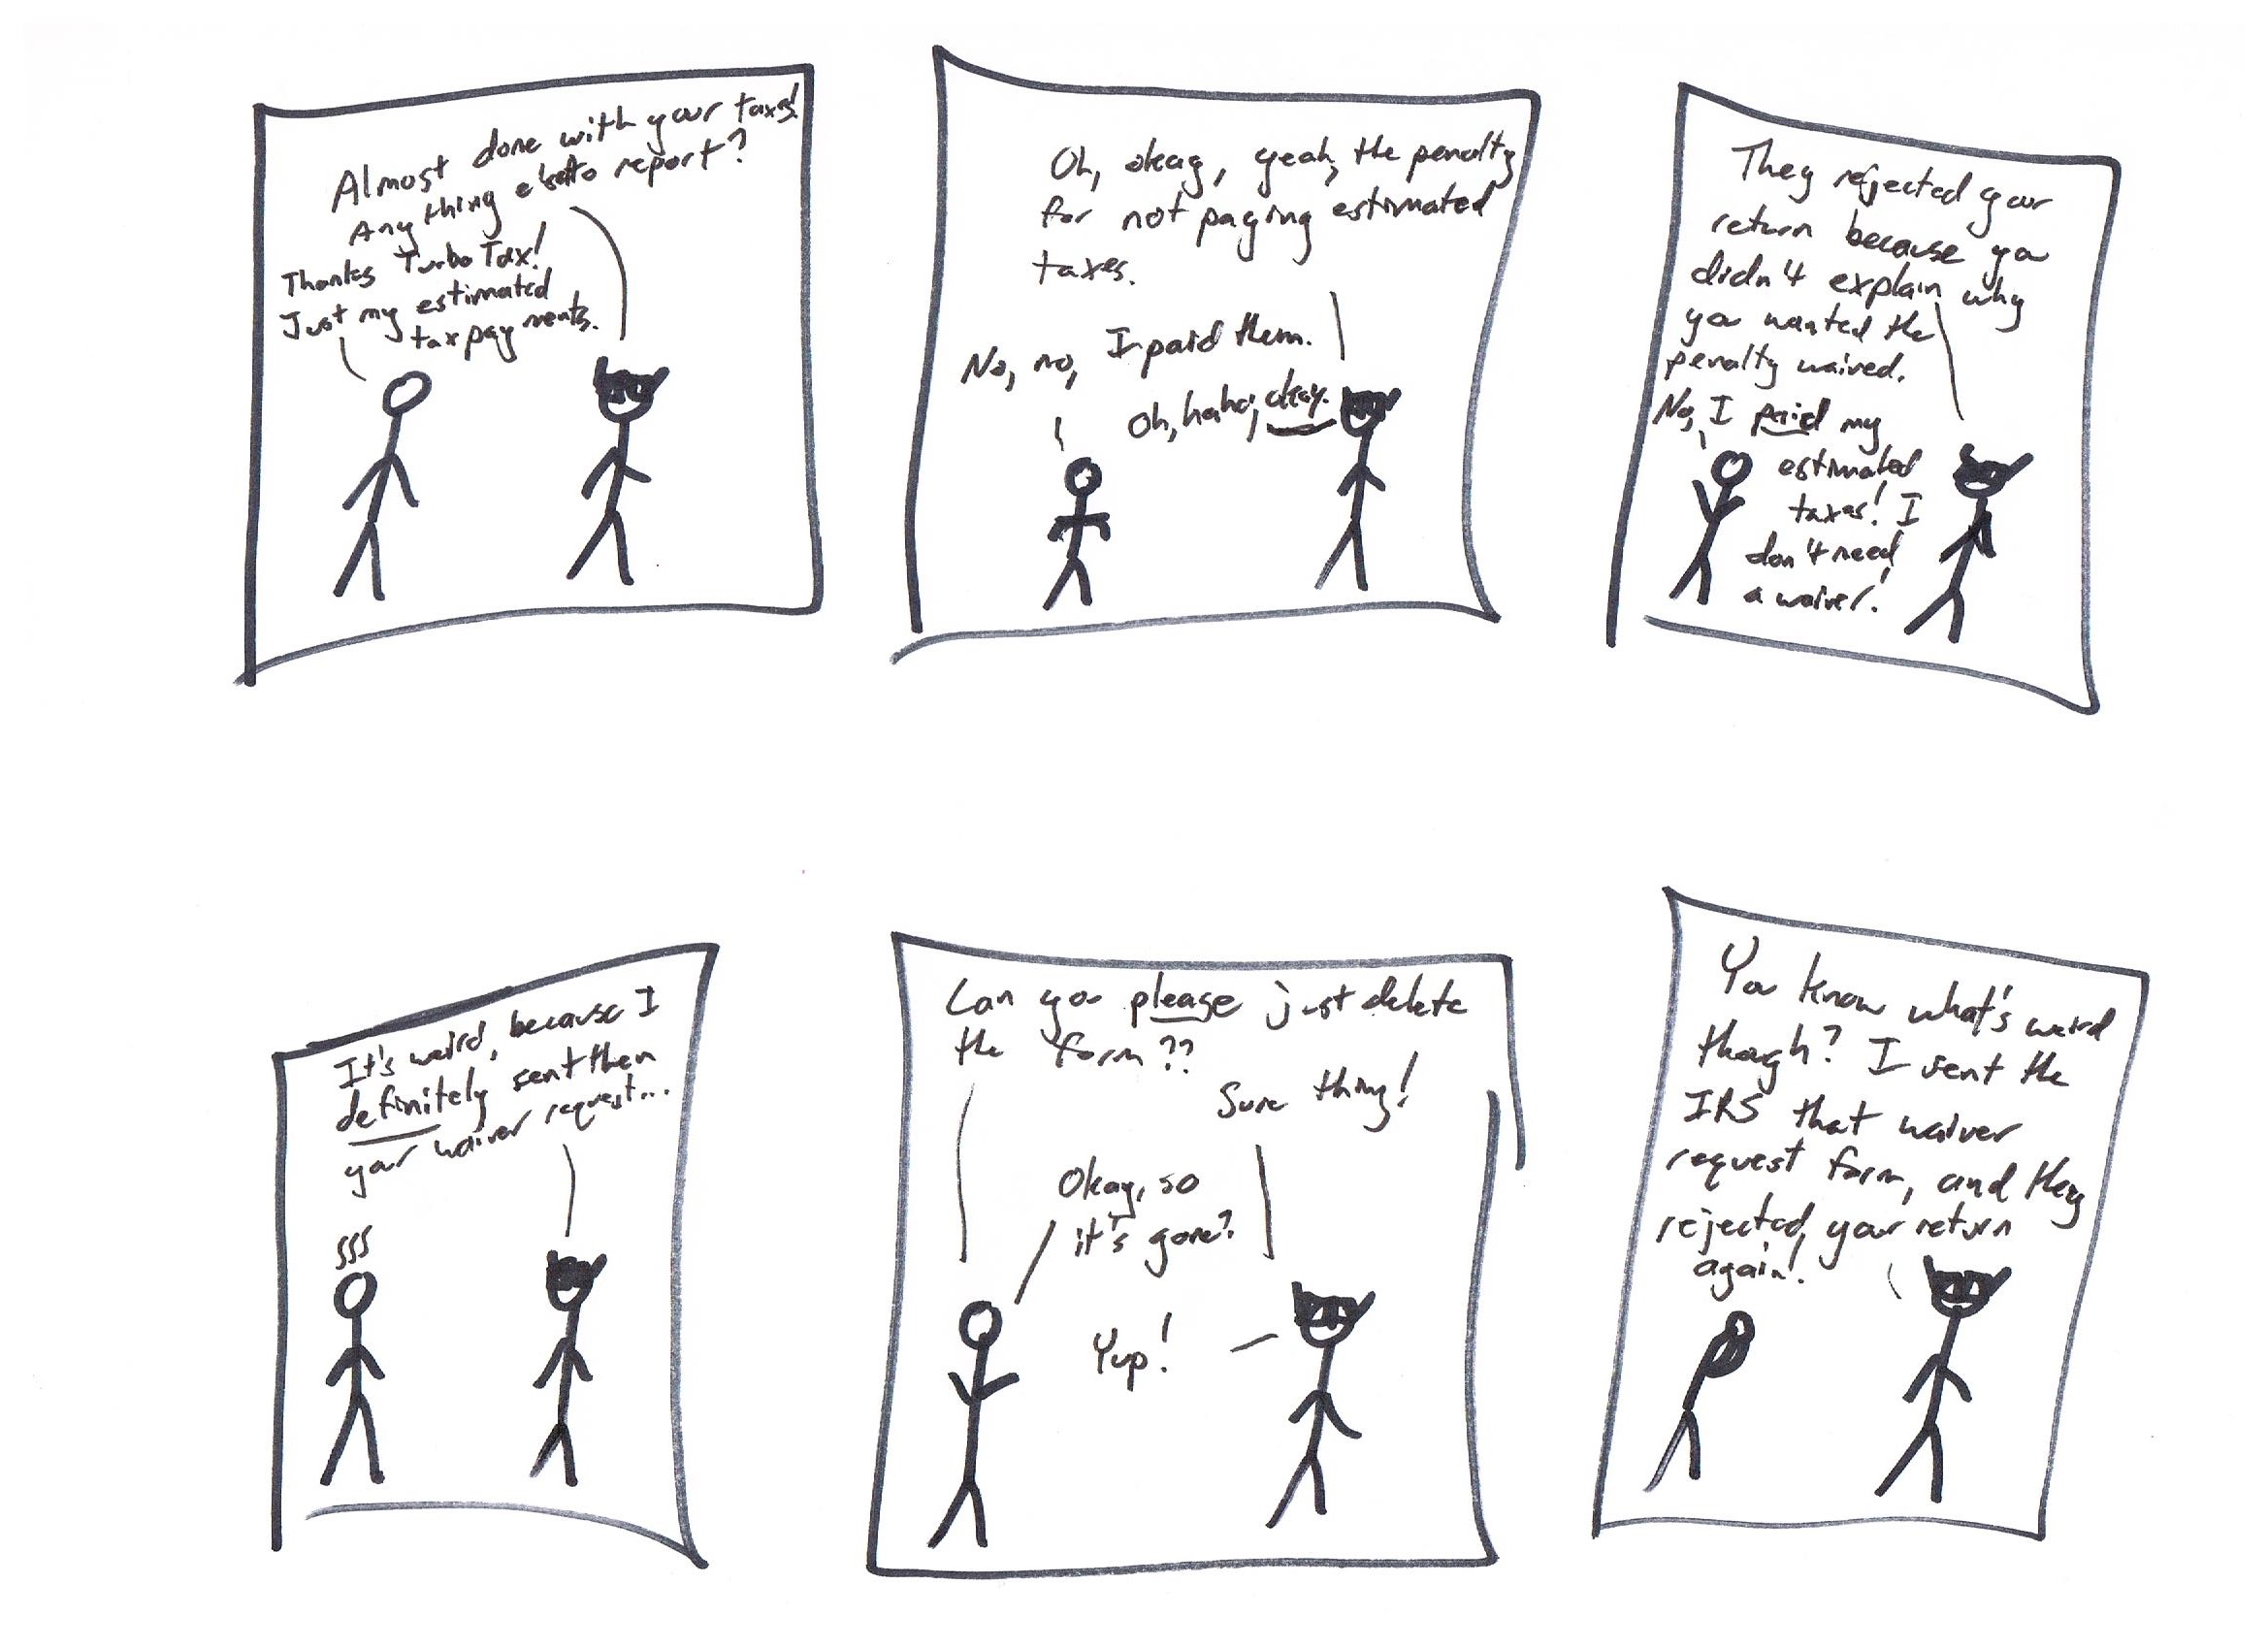 Almost done with your taxes!
Anything else to report?
Thanks TurboTax!
Just my estimated
tax payments.
Oh, okay, yeah, the penalty
for not paying estimated
taxes.
No, no, I paid them.
Oh, haha, okay.
They rejected your
return because you
didn't explain why
you wanted the
penalty waived.
No, I paid my
estimated
taxes! I
don't need
a waiver!
It's weird, because I
definitely sent them
your waiver request...
Can you please just delete
the form??
Sure thing!
Okay, so
it's gone?
Yup!
You know what's weird
though? I sent the
IRS that waiver
request form, and they
rejected your return
again!